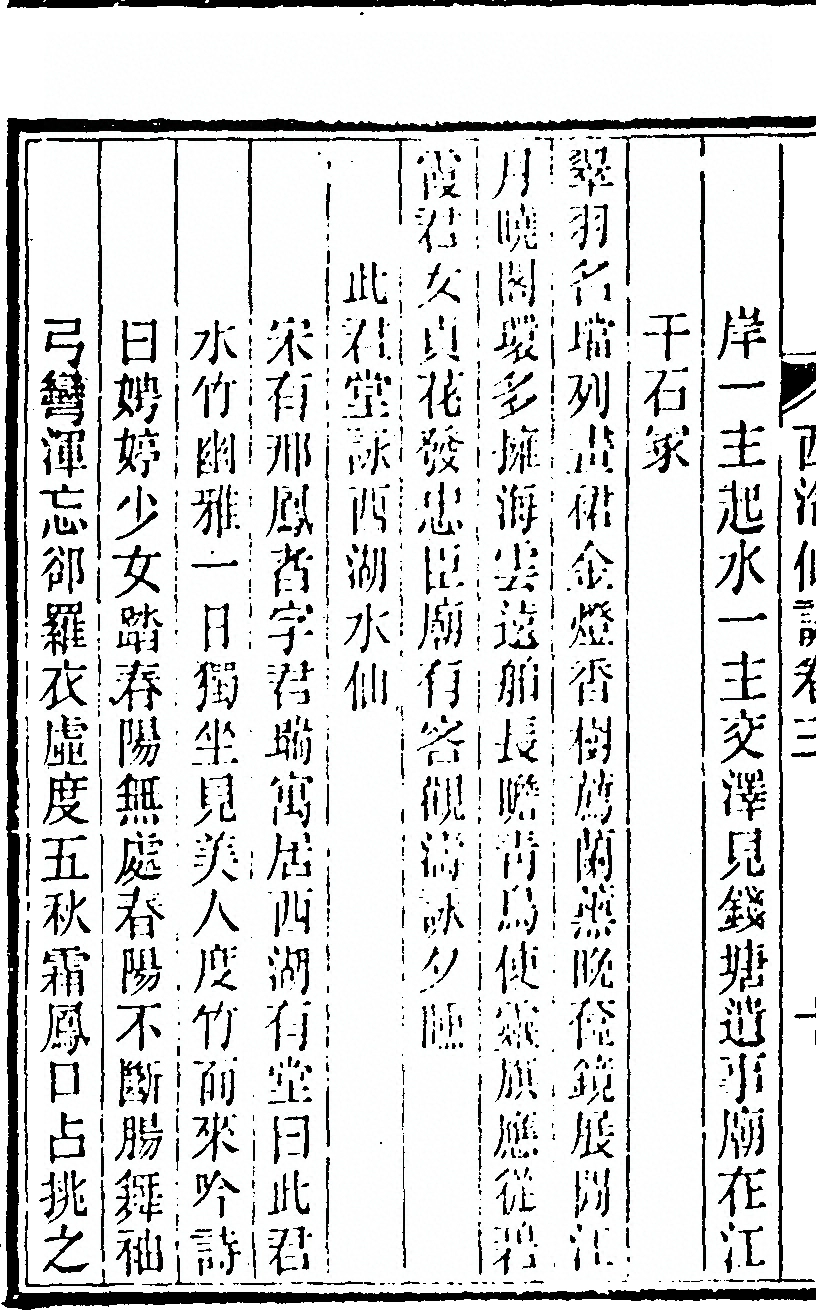 西泠仙詠卷三
岸一主起水一主交澤見錢塘遺事廟在江
干石冢
翠羽名璫列畫裙金燈香樹蔦蘭薰晚奩鏡展開江
月曉閣環多擁海雲遠舶長瞻靑鳥使靈旗應從碧
霞君女貞花發忠臣廟有客觀濤詠夕曛
此君堂詠西湖水仙
宋有邢鳳者字君瑞寓居西湖有堂曰此君
水竹幽雅一日獨坐見美人度竹而來吟詩
曰娉婷少女踏春陽無處春陽不斷腸舞袖
弓彎渾忘卻羅衣虛度五秋霜鳳口占挑之